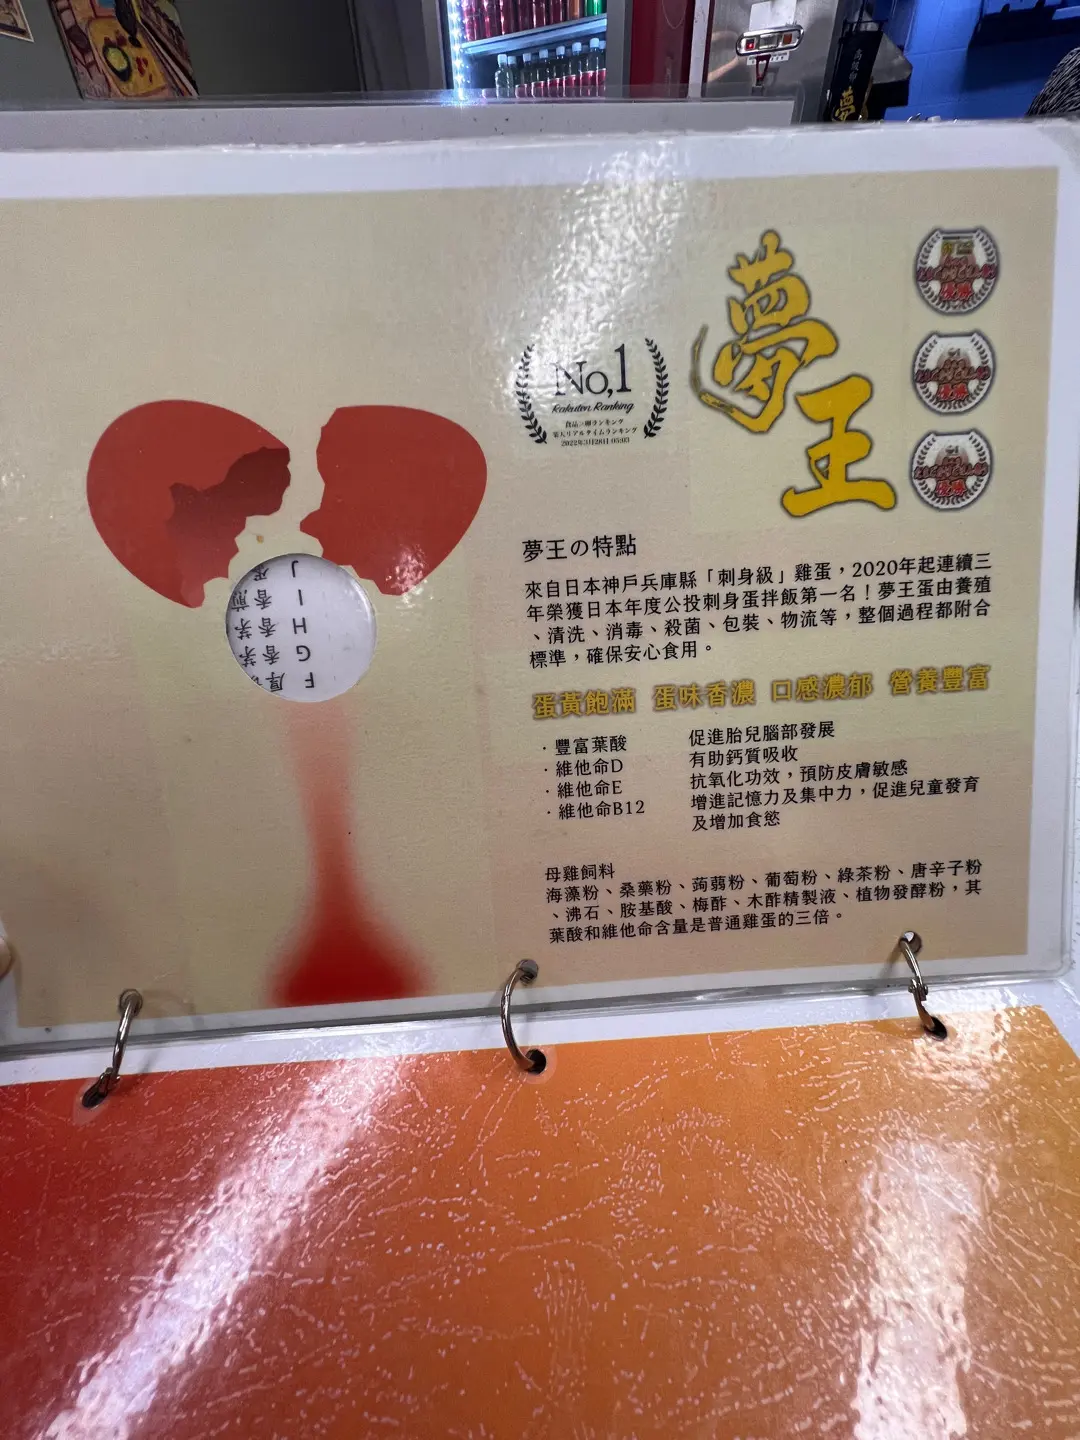 夢王
No,1
Rakuten Ranking
2022年3月28日 05:03
優勝
優勝
優勝
夢王の特點
來自日本神戶兵庫縣「刺身級」雞蛋，2020年起連續三
年榮獲日本年度公投刺身蛋拌飯第一名！夢王蛋由養殖
、清洗、消毒、殺菌、包裝、物流等，整個過程都附合
標準，確保安心食用。
蛋黃飽滿 蛋味香濃 口感濃郁 營養豐富
· 豐富葉酸 促進胎兒腦部發展
· 維他命D 有助鈣質吸收
· 維他命E 抗氧化功效，預防皮膚敏感
· 維他命B12 增進記憶力及集中力，促進兒童發育
及增加食慾
母雞飼料
海藻粉、桑藥粉、蒟蒻粉、葡萄粉、綠茶粉、唐辛子粉
、沸石、胺基酸、梅酢、木酢精製液、植物發酵粉，其
葉酸和維他命含量是普通雞蛋的三倍。
F 厚
G 香茅
H 香茅
I 香煎
J
夢